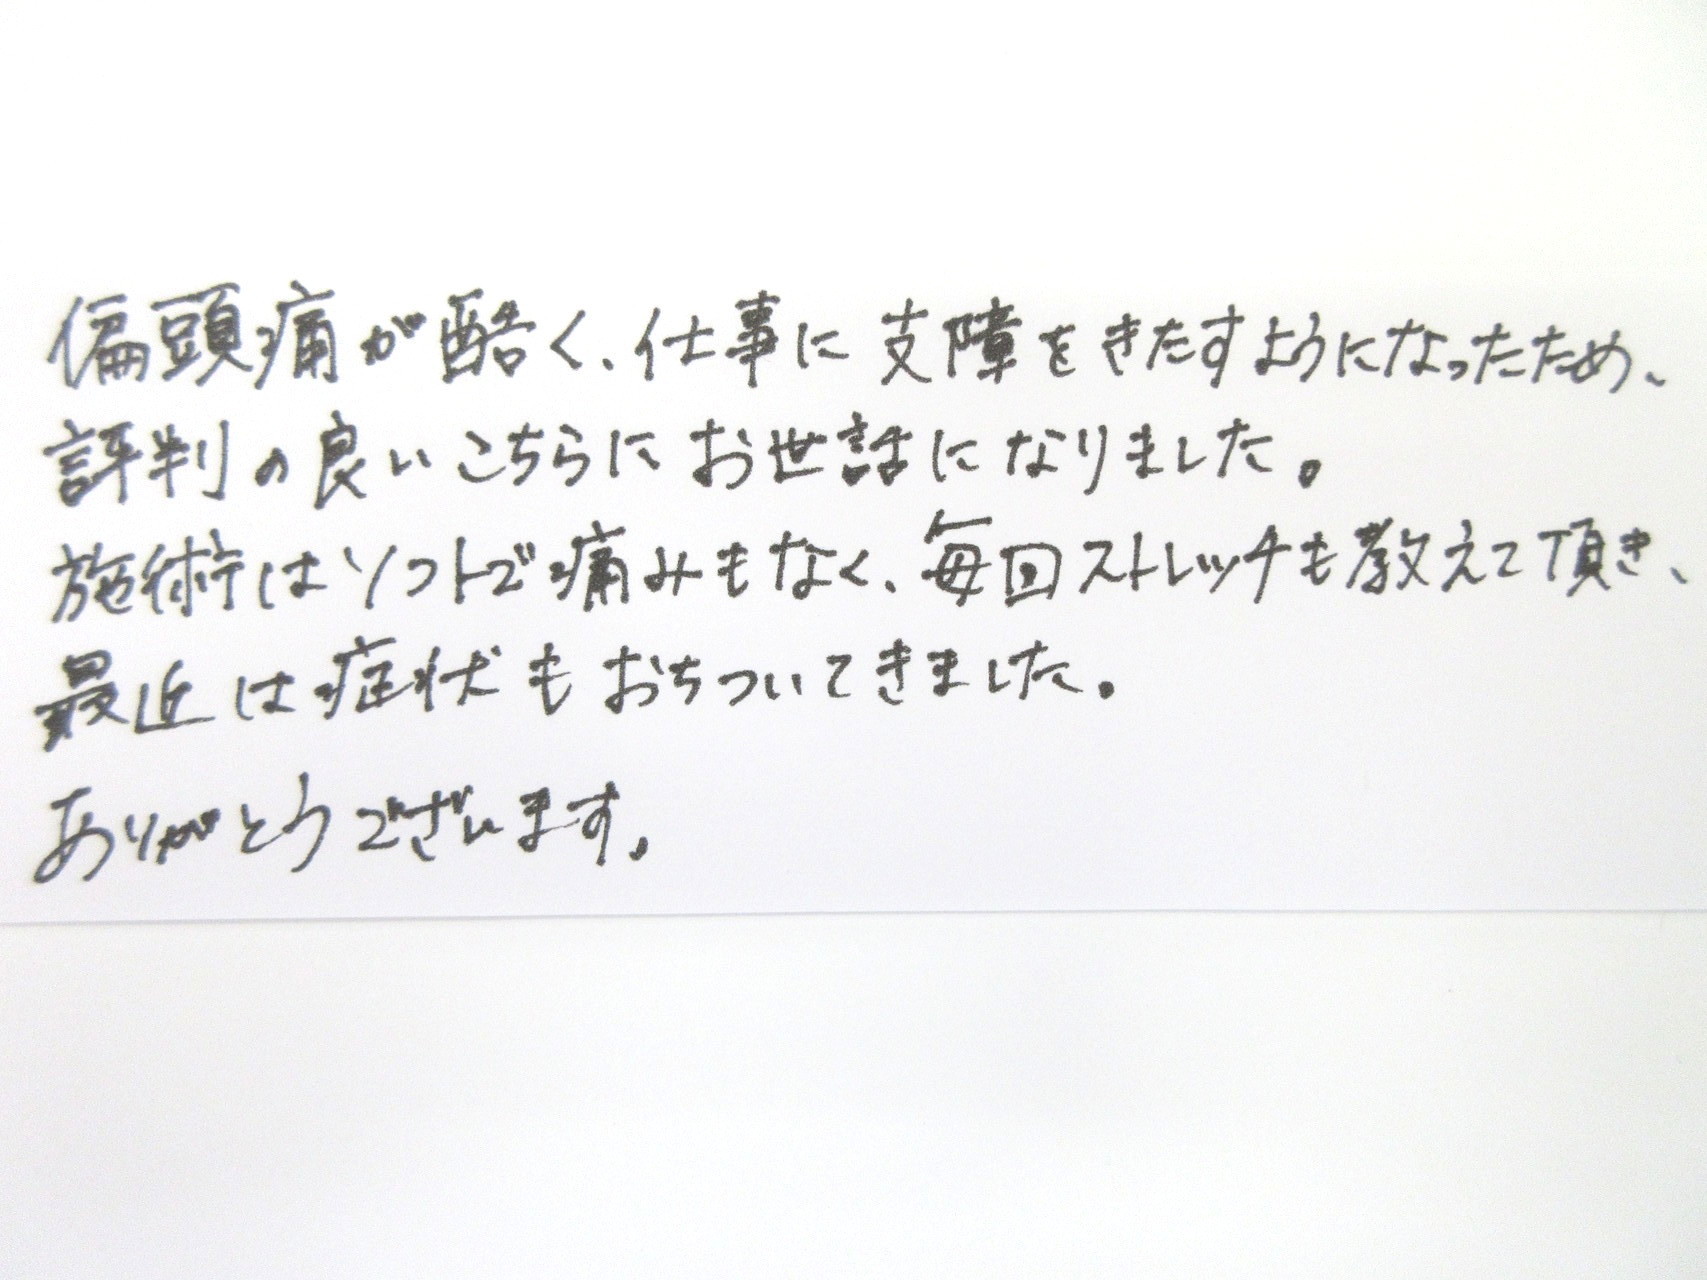 偏頭痛が酷く、仕事に支障をきたすようになったため、
評判の良いこちらにお世話になりました。
施術はソフトで痛みもなく、毎回ストレッチも教えて頂き、
最近は症状もおちついてきました。
ありがとうございます。